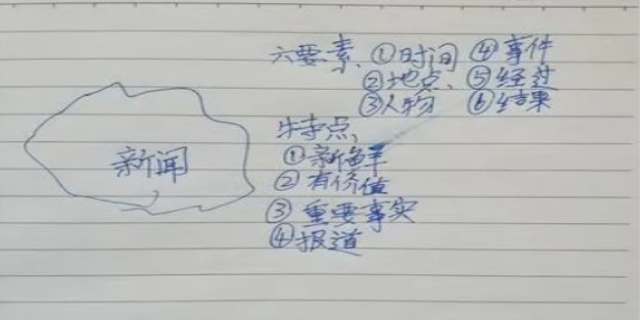 六要素、①时间 ④事件
②地点、⑤经过
③人物 ⑥结果
新闻
特点、
①新鲜
②有价值
③重要事实
④报道